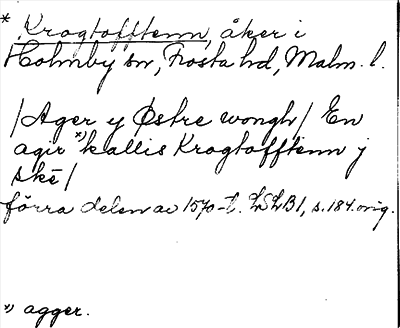 * Krogtofftenn, åker i
Holmby sn, Frosta hd, Malm. l.
/Ager y Østre wongh/ En
agir *) kallis Krogtofftenn j
skē/
förra delen av 1570-t. LSLB1, s. 184. orig.
*) agger.